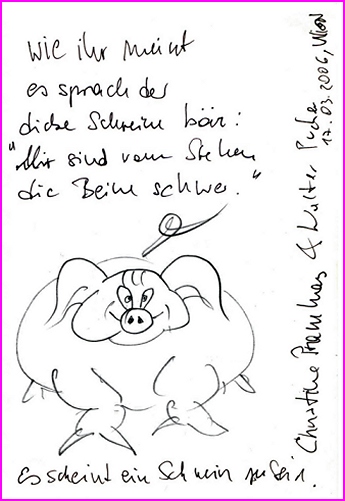 wie ihr meint
es sprach der
dicke Schreim bär:
"Mir sind vom Stehen
die Beine schwer."
Es scheint ein Schwein zu sein.
Christine & Walter
17.03.2006, Wien